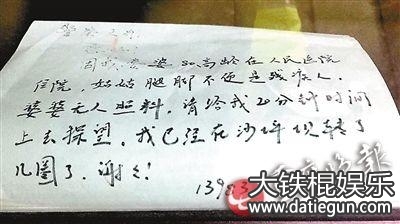 警察
婆婆80高龄在人民医院
住院,姑姑腿脚不便是残疾人.
婆婆无人照料,请给我20分钟时间
上去探望.我已经在沙坪坝转了
几圈了,谢々!
13983
晚报
大铁棍娱乐
www.datiegun.com